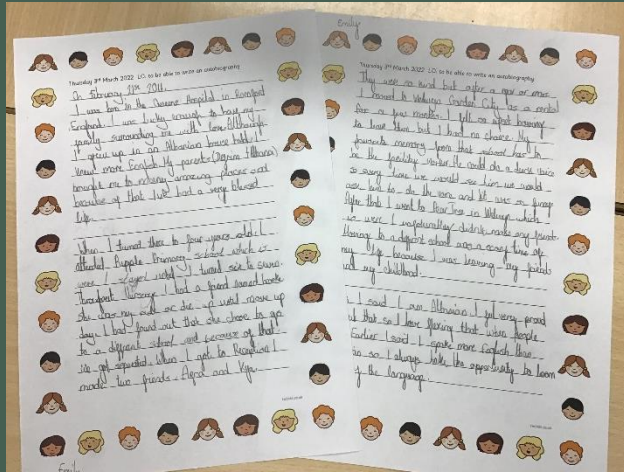 Thursday 3rd March 2022 L.O. to be able to write an autobiography
On February 21st 2011
I was born in the Queens Hospital in Romford
England. I was lucky enough to have my
family surrounding me with love. Although
I grew up in an Albanian household I
knew more English. My parents
brought me to many amazing places and
because of that I had a very blessed
life.
When I turned three to four years old I
attended Puppets Primary school which is
were I stayed until I turned six to seven.
throughout Nursery I had a friend named
she was my ride or die. I would move up
days I had found out that she chose to go
to a different school and because of that
we got separated. When I got to Reception I
made two friends Agna and
Emily
Emily
Thursday 3rd March 2022 L.O. to be able to write an autobiography
They were so kind but after a year or more
I moved to Welwyn Garden City as a rental
for a few months. I felt so upset having
to leave them but I had no choice. My
favourite memory from that school has to
be the family worker. He could do a duck voice
so every time we would see him we would
ask him to do the voice and it was so funny.
After that I went to in Welwyn which
is were I unfortunately didn't make any friends.
Moving to a different school was a scary time of
my life because I was leaving my friends
and my childhood.
I said I am Albanian I feel very proud
of that so I love flexing that when people
Earlier I said I spoke more English than
so I always take the opportunity to learn
of the language.